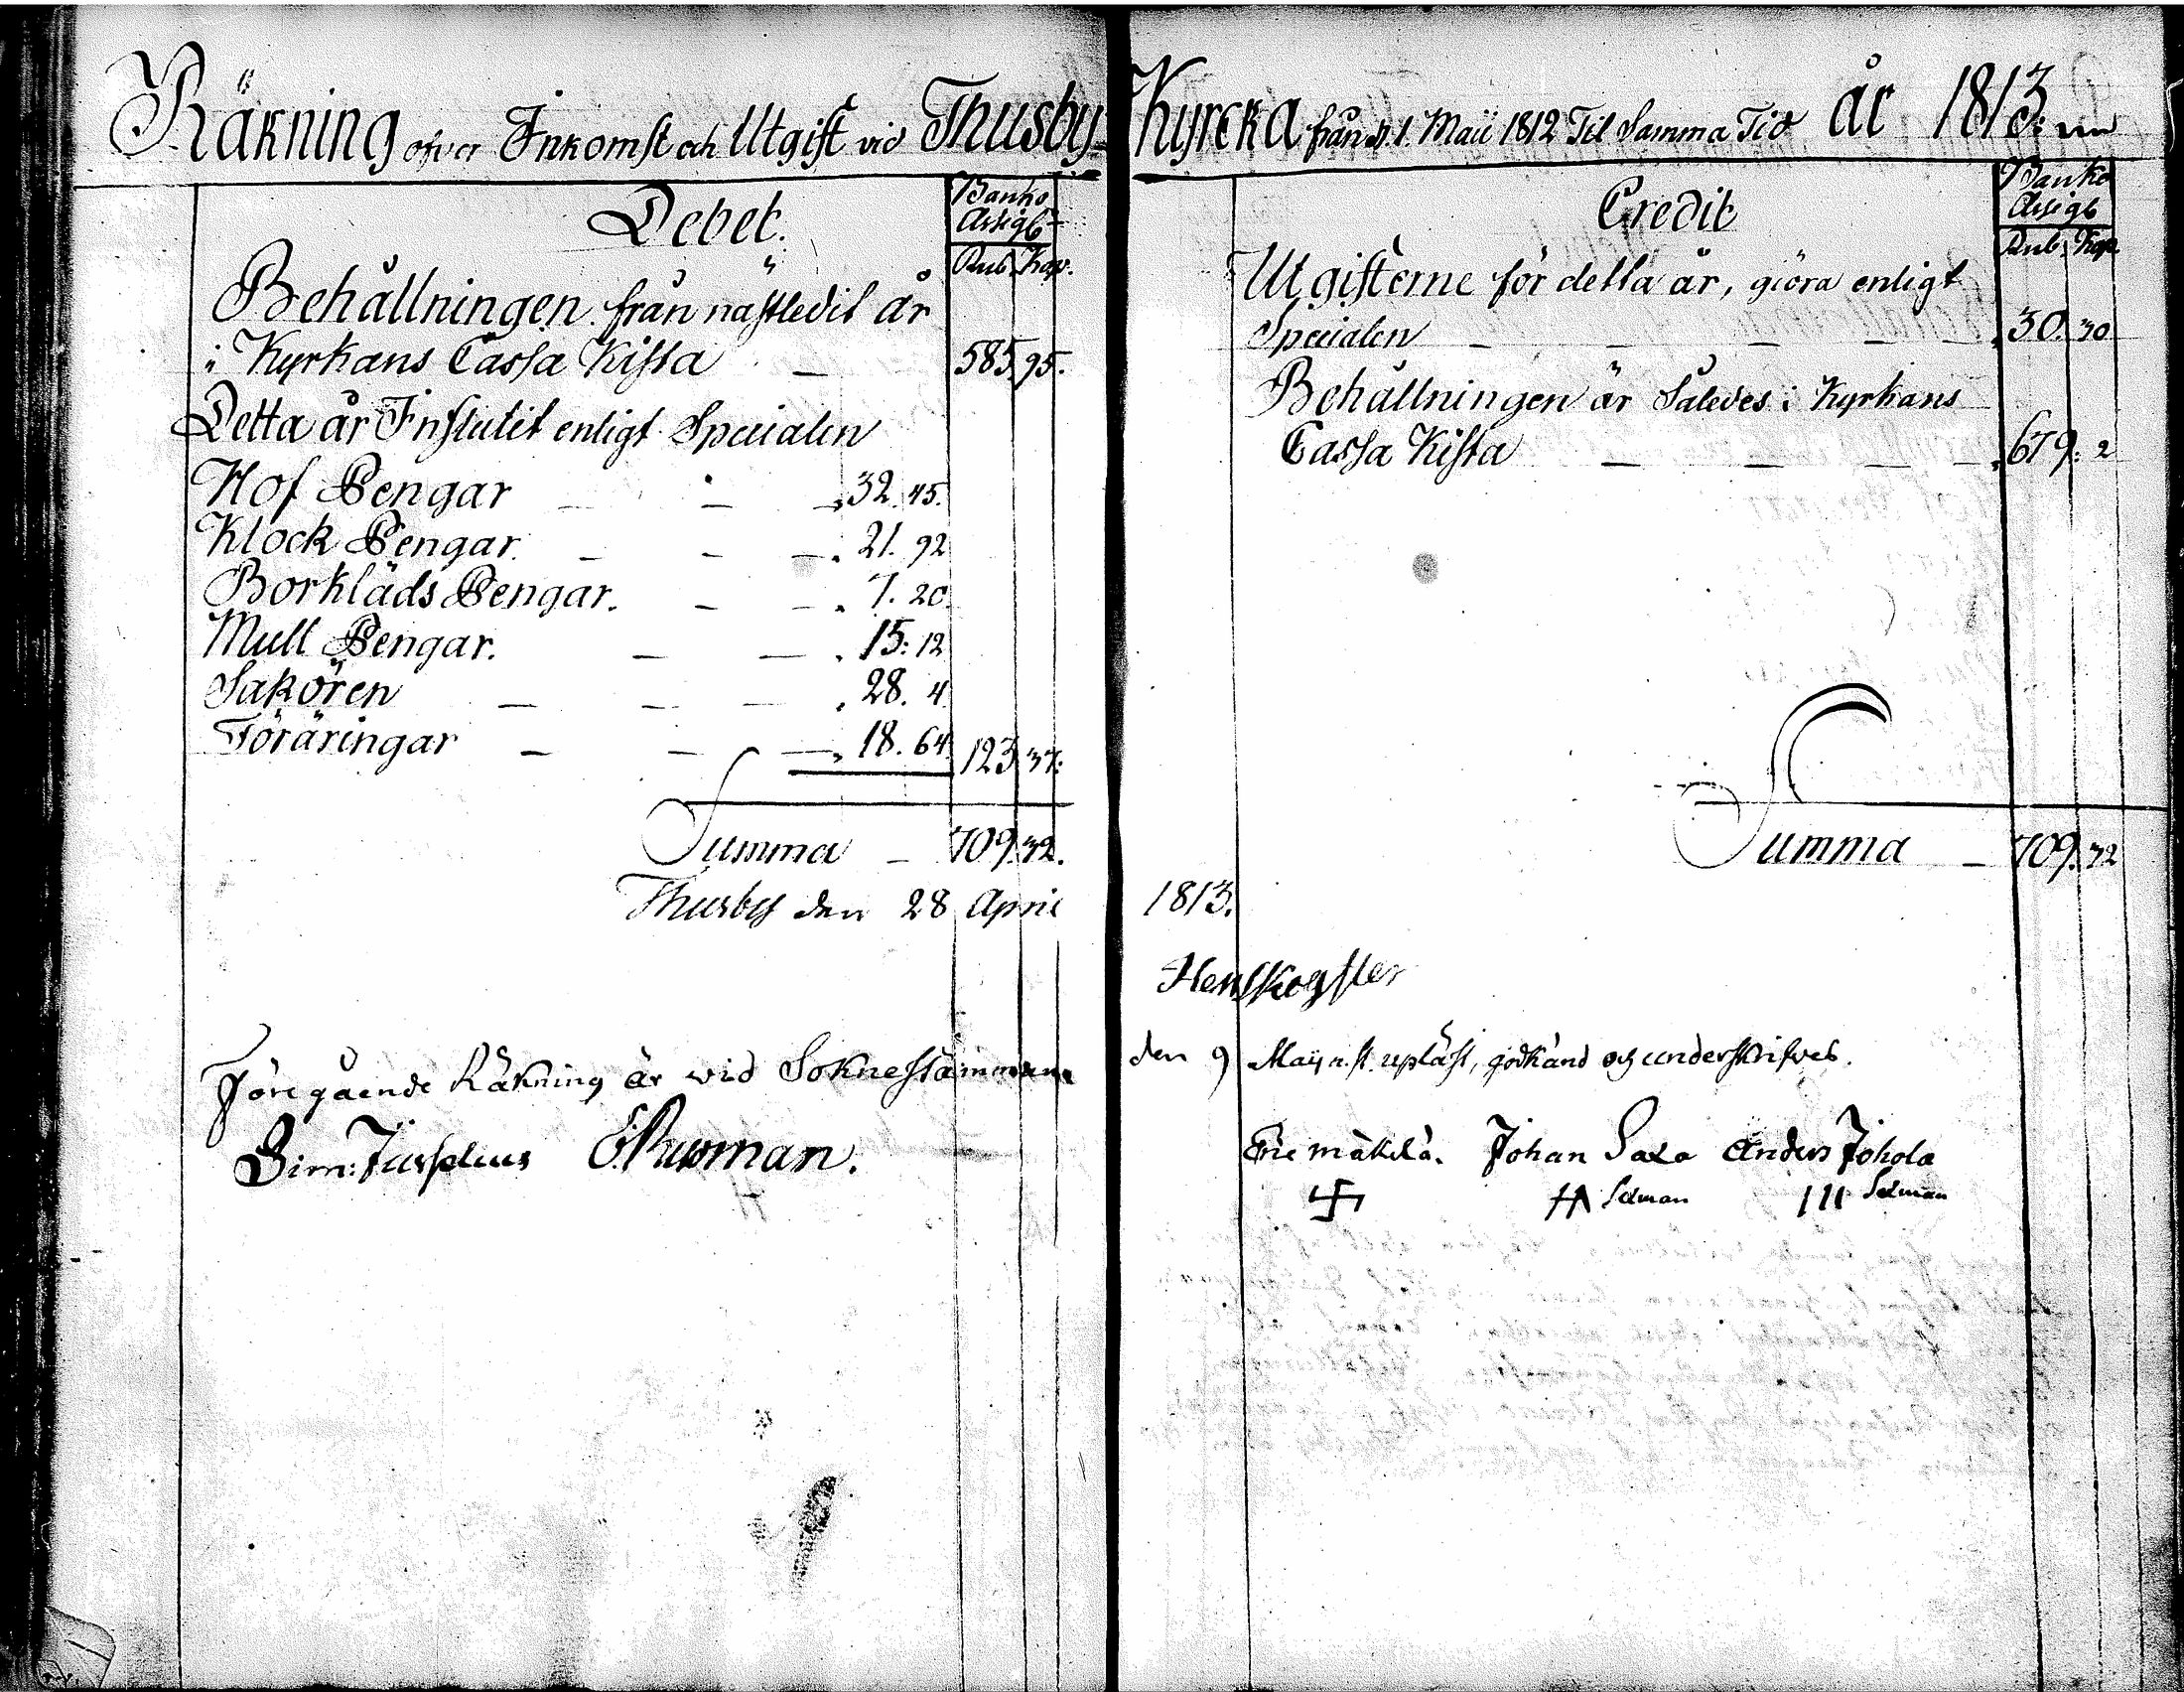 Räkning öfver Inkomst och Utgift vid Thusby Kyrcka från d. 1. Maii 1812 Til Samma Tid år 1813.
Debet.
Banko Assigb
Rub. Kop.
Behållningen från nästledit år
i Kyrkans Cassa Kista — 585. 95.
Detta år Influtit enligt Specialen
Hof Pengar — — 32. 45.
Klock Pengar. — — 21. 92
Borkläds Pengar. — — 7. 20.
Mull Pengar. — — 15: 12
Saköien — — — 28. 4
Föräringar — — — 18. 64 123 37:
Summa — 709. 32.
Thusby den 28 April 1813.
Credit
Banko Assigb
Rub. Kop.
Utgifterne för detta år, giöra enligt
Specialen — — — — 30. 30
Behållningen är Således i Kyrkans
Cassa Kista — — — — 679: 2
Summa — 709. 32
Föregående Räkning är wid Sokneståmman den 9 Maij n. st. upläst, godkänd och underskrifves.
Eric mäkelä. Johan Saxa Anders Johola
卐 HA Sexman III Sexman